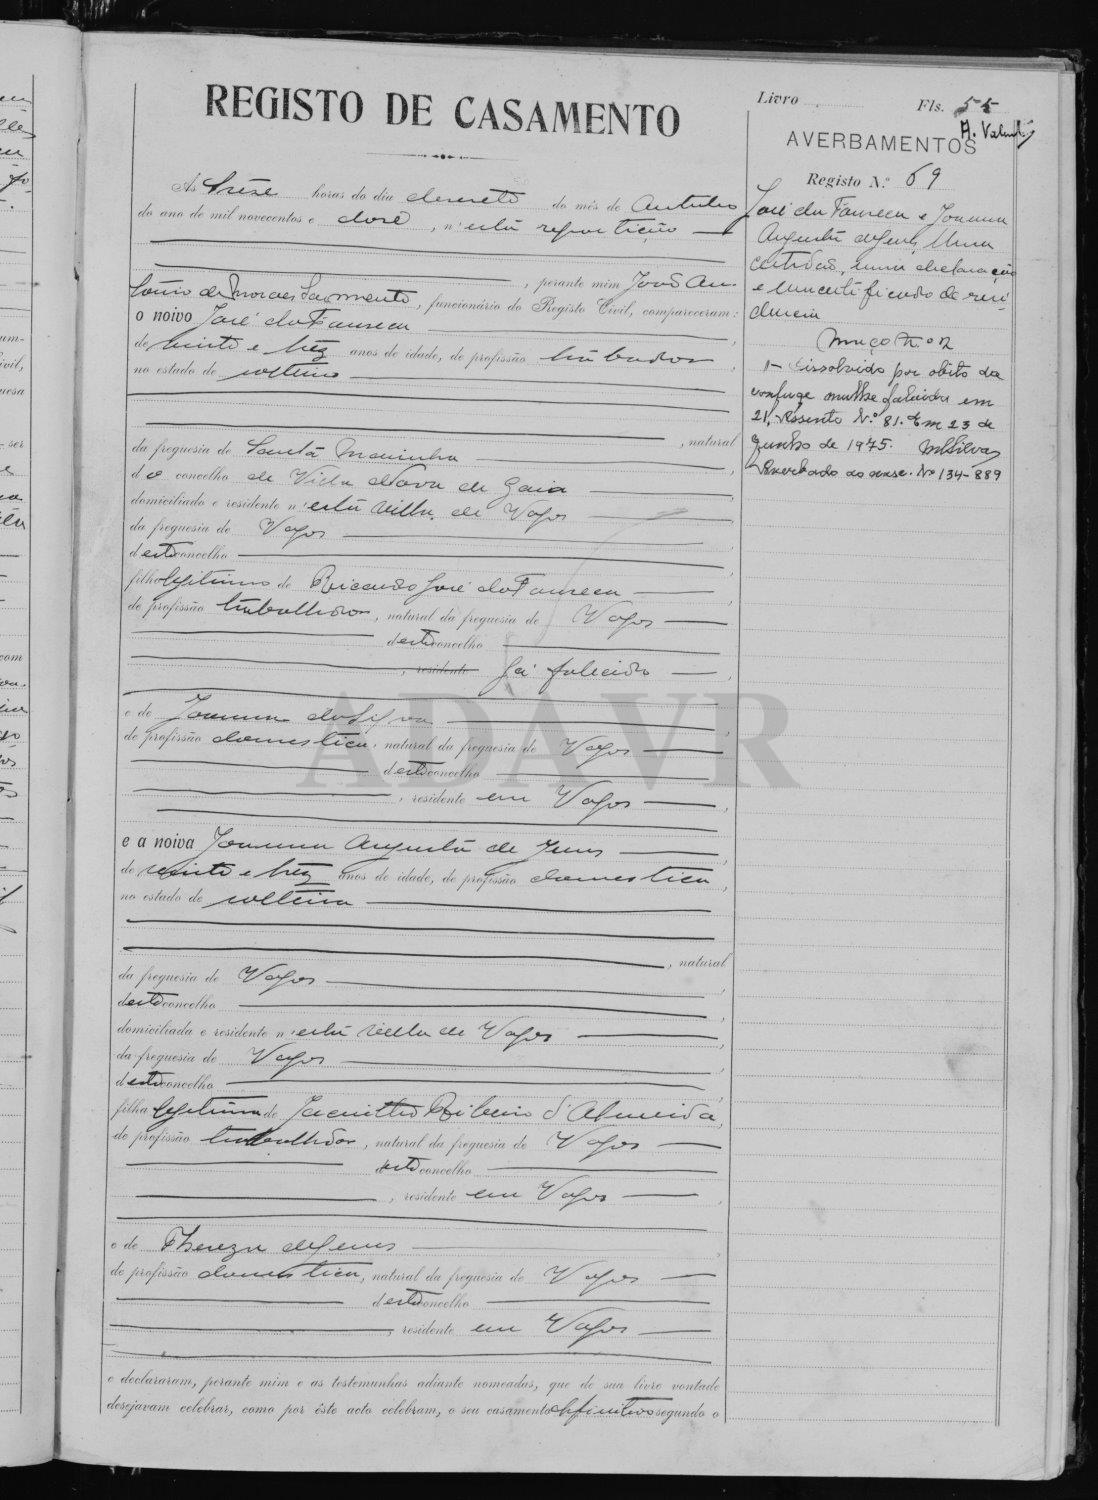 REGISTO DE CASAMENTO
Livro
Fls. 55
A. Valent
AVERBAMENTOS
Registo N.º 69
José da Fonseca e Joanna
Augusta de Jesus. Uma
certidão, uma declaração
e um certificado de resi-
dencia
Maço n.º 12
1 - Dissolvido por obito da
conjuge mulher falecida em
21, Assento N.º 81. Em 23 de
Junho de 1975. MSilva
Averbado ao asse. Nº 134-889
As trêse horas do dia desesete do mês de Outubro
do ano de mil novecentos e dose, n'esta repartição
, perante mim João An-
tonio de Moraes Sarmento, funcionário do Registo Civil, compareceram:
o noivo José da Fonseca
de vinte e trez anos de idade, de profissão trabalhador
no estado de solteiro
, natural
da freguesia de Santa Marinha
do concelho de Villa Nova de Gaia
domiciliado e residente n'esta villa de Vagos
da freguesia de Vagos
d'este concelho
filho legitimo de Ricardo José da Fonseca
de profissão trabalhador, natural da freguesia de Vagos
d'este concelho
, residente já falecido
e de Joanna da Silva
de profissão domestica, natural da freguesia de Vagos
d'este concelho
, residente em Vagos
e a noiva Joanna Augusta de Jesus
de vinte e trez anos de idade, de profissão domestica,
no estado de solteira
, natural
da freguesia de Vagos
d'este concelho
domiciliada e residente n'esta villa de Vagos
da freguesia de Vagos
d'este concelho
filha legitima de Jacintho Ribeiro d'Almeida,
de profissão trabalhador, natural da freguesia de Vagos
d'este concelho
, residente em Vagos
e de Thereza de Jesus
de profissão domestica, natural da freguesia de Vagos
d'este concelho
, residente em Vagos
e declararam, perante mim e as testemunhas adiante nomeadas, que de sua livre vontade
desejavam celebrar, como por êste acto celebram, o seu casamento definitivo segundo o
ADAVR